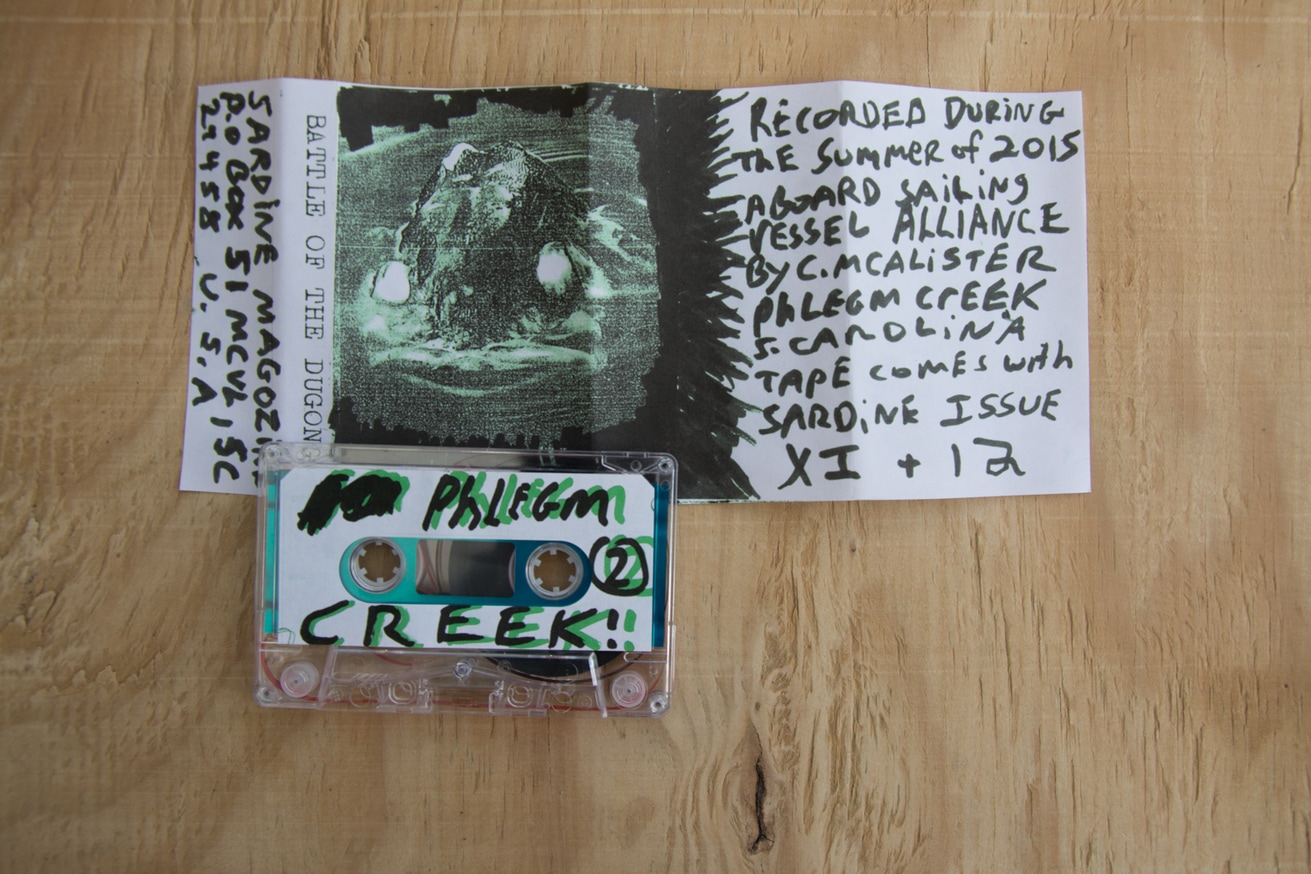 SARDINE MAGOZI
P.O BOX 51 MCVL I SC
29458 U.S.A
BATTLE OF THE DUGONG
RECORDED DURING
THE SUMMER of 2015
ABOARD SAILING
VESSEL ALLIANCE
BY C.MCALISTER
PHLEGM CREEK
S. CAROLINA
TAPE COMES with
SARDINE ISSUE
XI + 12
PHLEGM
2
CREEK!!